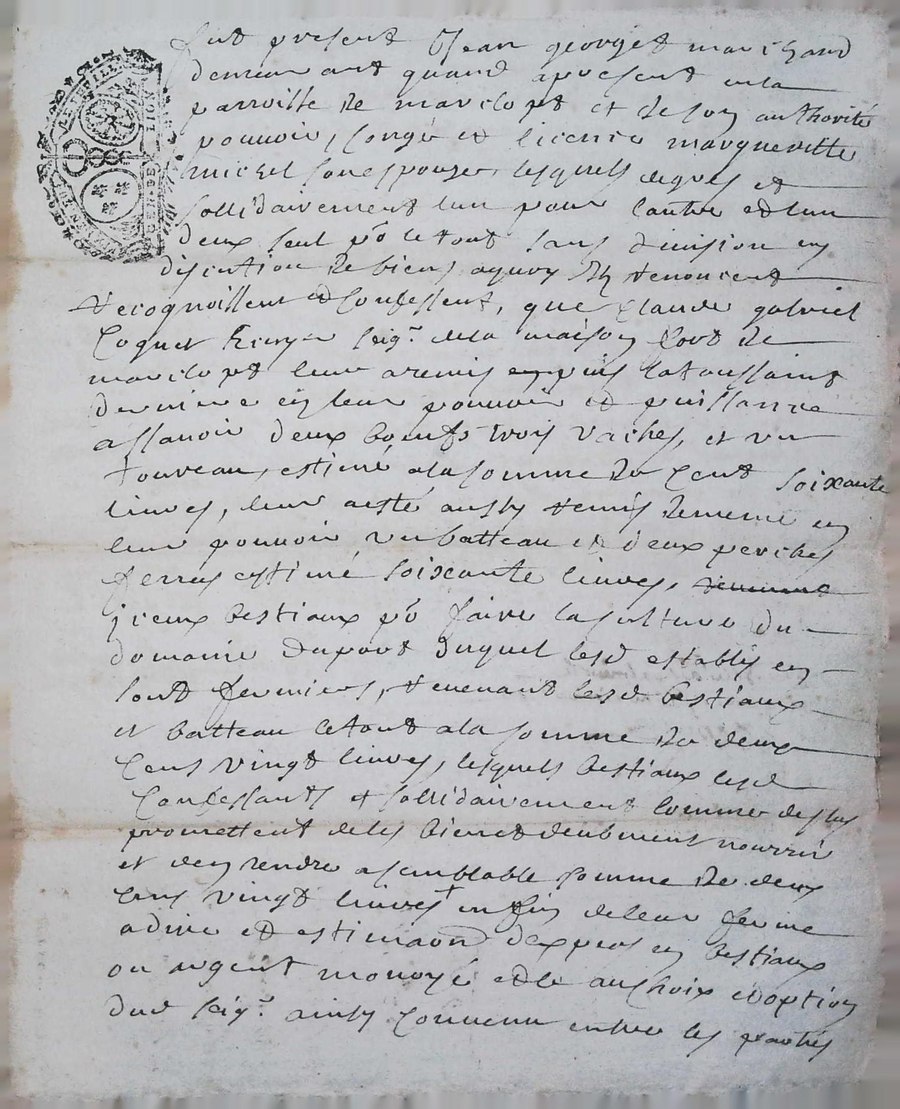 fut present Jean georget marchand
demeurant quand apresent en la
parroisse de marclopt et de son authorité
pouvoir, congé et licence margueritte
michel son espouze, lesquels degrés et
sollidairement lun pour lautre et lun
deux seul po le tout sans division ny
discution de biens aquoy ils renoncent
recognoissent et confessent, que Claude gabriel
Coquet seigr. de la maison fort de
marclopt leur a remis depuis latoussaint
derniere en leur pouvoir et puissance
assavoir deux boeufs trois vaches, et un
toureau, estimé ala somme de Cent soixante
livres, leur aesté aussy remis de meme en
leur pouvoir un batteau et deux perches
ferres estimé soixante livres,
iceux bestiaux po faire la culture du
domaine duport duquel lesd establis en
sont fermiers, revenant lesd bestiaux
et batteau le tout ala somme de deux
Cens vingt livres, lesquels bestiaux lesd
Confessants et sollidairement comme dessus
promettent de les bien et deubment nourrir
et den rendre asemblable somme de deux
Cens vingt livres + en fin de leur ferme
adire et estimaon dexpers en bestiaux
ou argent monoyé et le au choix et option
dud seigr. ainsy Convenu entre les parties